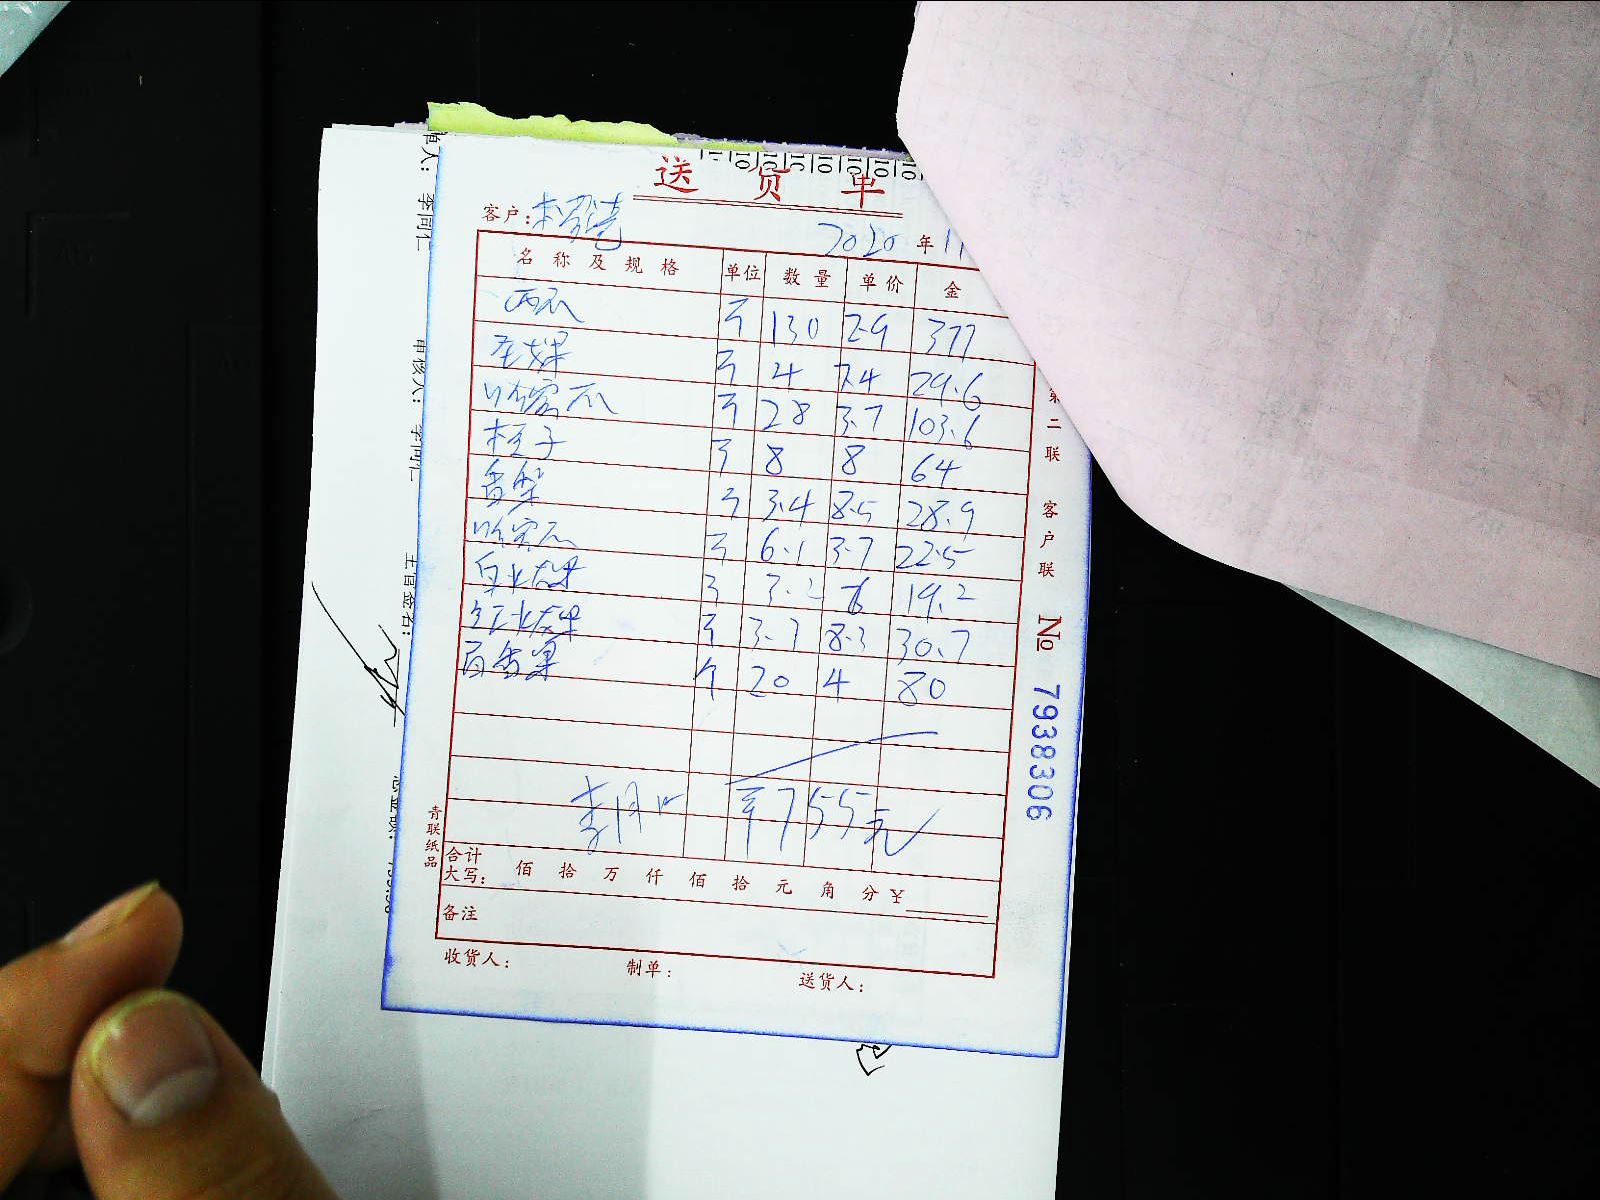 送货单
客户:
2020年11
名称及规格 单位 数量 单价 金
西瓜 斤 130 2.9 377
斤 4 7.4 29.6
哈密瓜 斤 28 3.7 103.6
桔子 斤 8 8 64
香梨 斤 3.4 8.5 28.9
哈密瓜 斤 6.1 3.7 22.5
白火龙果 斤 3.2 6 19.2
红火龙果 斤 3.7 8.3 30.7
百香果 个 20 4 80
¥755元
合计
大写: 佰 拾 万 仟 佰 拾 元 角 分 ¥
备注
收货人: 制单: 送货人:
青联纸品
第二联 客户联
No 7938306
单人: 李同仁
审核人: 李同仁
主管签名: